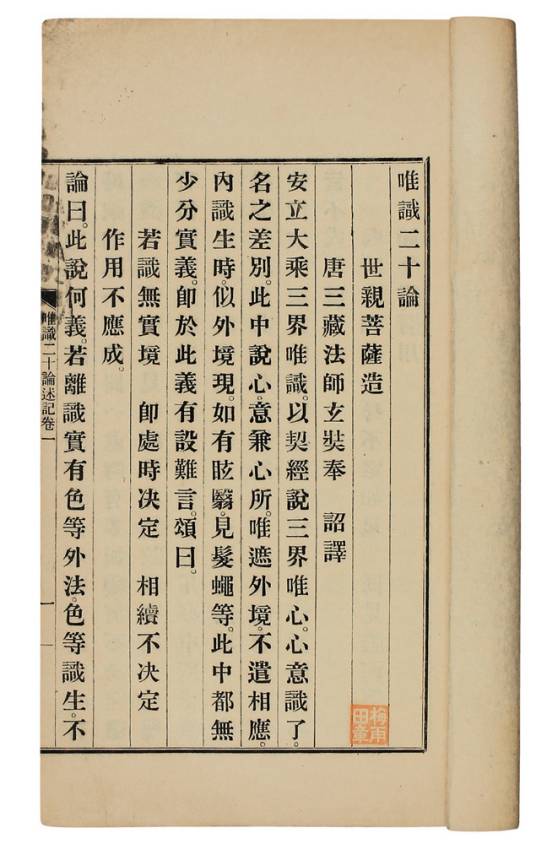 唯識二十論
世親菩薩造
唐三藏法師玄奘奉 詔譯
安立大乘三界唯識。以契經說三界唯心。心意識了。
名之差別。此中說心。意兼心所。唯遮外境。不遣相應。
內識生時。似外境現。如有眩瞖。見髮蠅等。此中都無
少分實義。卽於此義有設難言。頌曰。
若識無實境 卽處時決定 相續不決定
作用不應成。
論曰。此說何義。若離識實有色等外法。色等識生。不
唯識二十論述記卷一
一